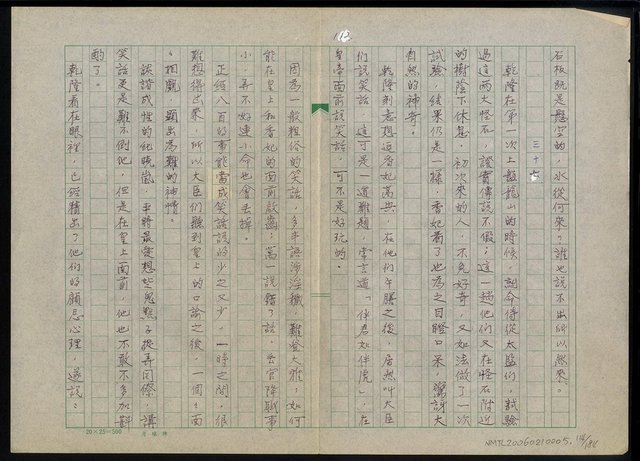 112
石板既是懸空的，水從何來？誰也說不出所以然來。
三十七
乾隆在第一次上盤龍山的時候，詔命侍從太監們，試驗
過這兩大怪石，證實傳說不假；這一趟他們又在怪石附近
的樹蔭下休息，初次來的人，不免好奇，又如法做了一次
試驗，結果仍是一樣，香妃看了也為之目瞪口呆，驚訝大
自然的神奇。
乾隆刻意想逗香妃高興，在他們午膳之後，居然叫大臣
們說笑話，這可是一道難題，常言道「伴君如伴虎」，在
皇帝面前說笑話，可不是好玩的。
因為一般粗俗的笑話，多半語涉淫穢，難登大雅，如何
能在皇上和香妃的面前啟齒，萬一說錯了話，丟官降職事
小，弄不好連小命也會丟掉。
正經八百的事能當成笑話說的少之又少，一時之間，很
難想得出來，所以大臣們聽到皇上的口諭之後，一個個面
面相覷，顯出為難的神情。
詼諧成性的紀曉嵐，平時最愛想些鬼點子捉弄同僚，講
笑話更是難不倒他，但是在皇上面前，他也不敢不多加斟
酌了。
乾隆看在眼裡，已經猜出了他們的顧忌心理，遂說：
20×25=500
NMTL20060210005, 114/186